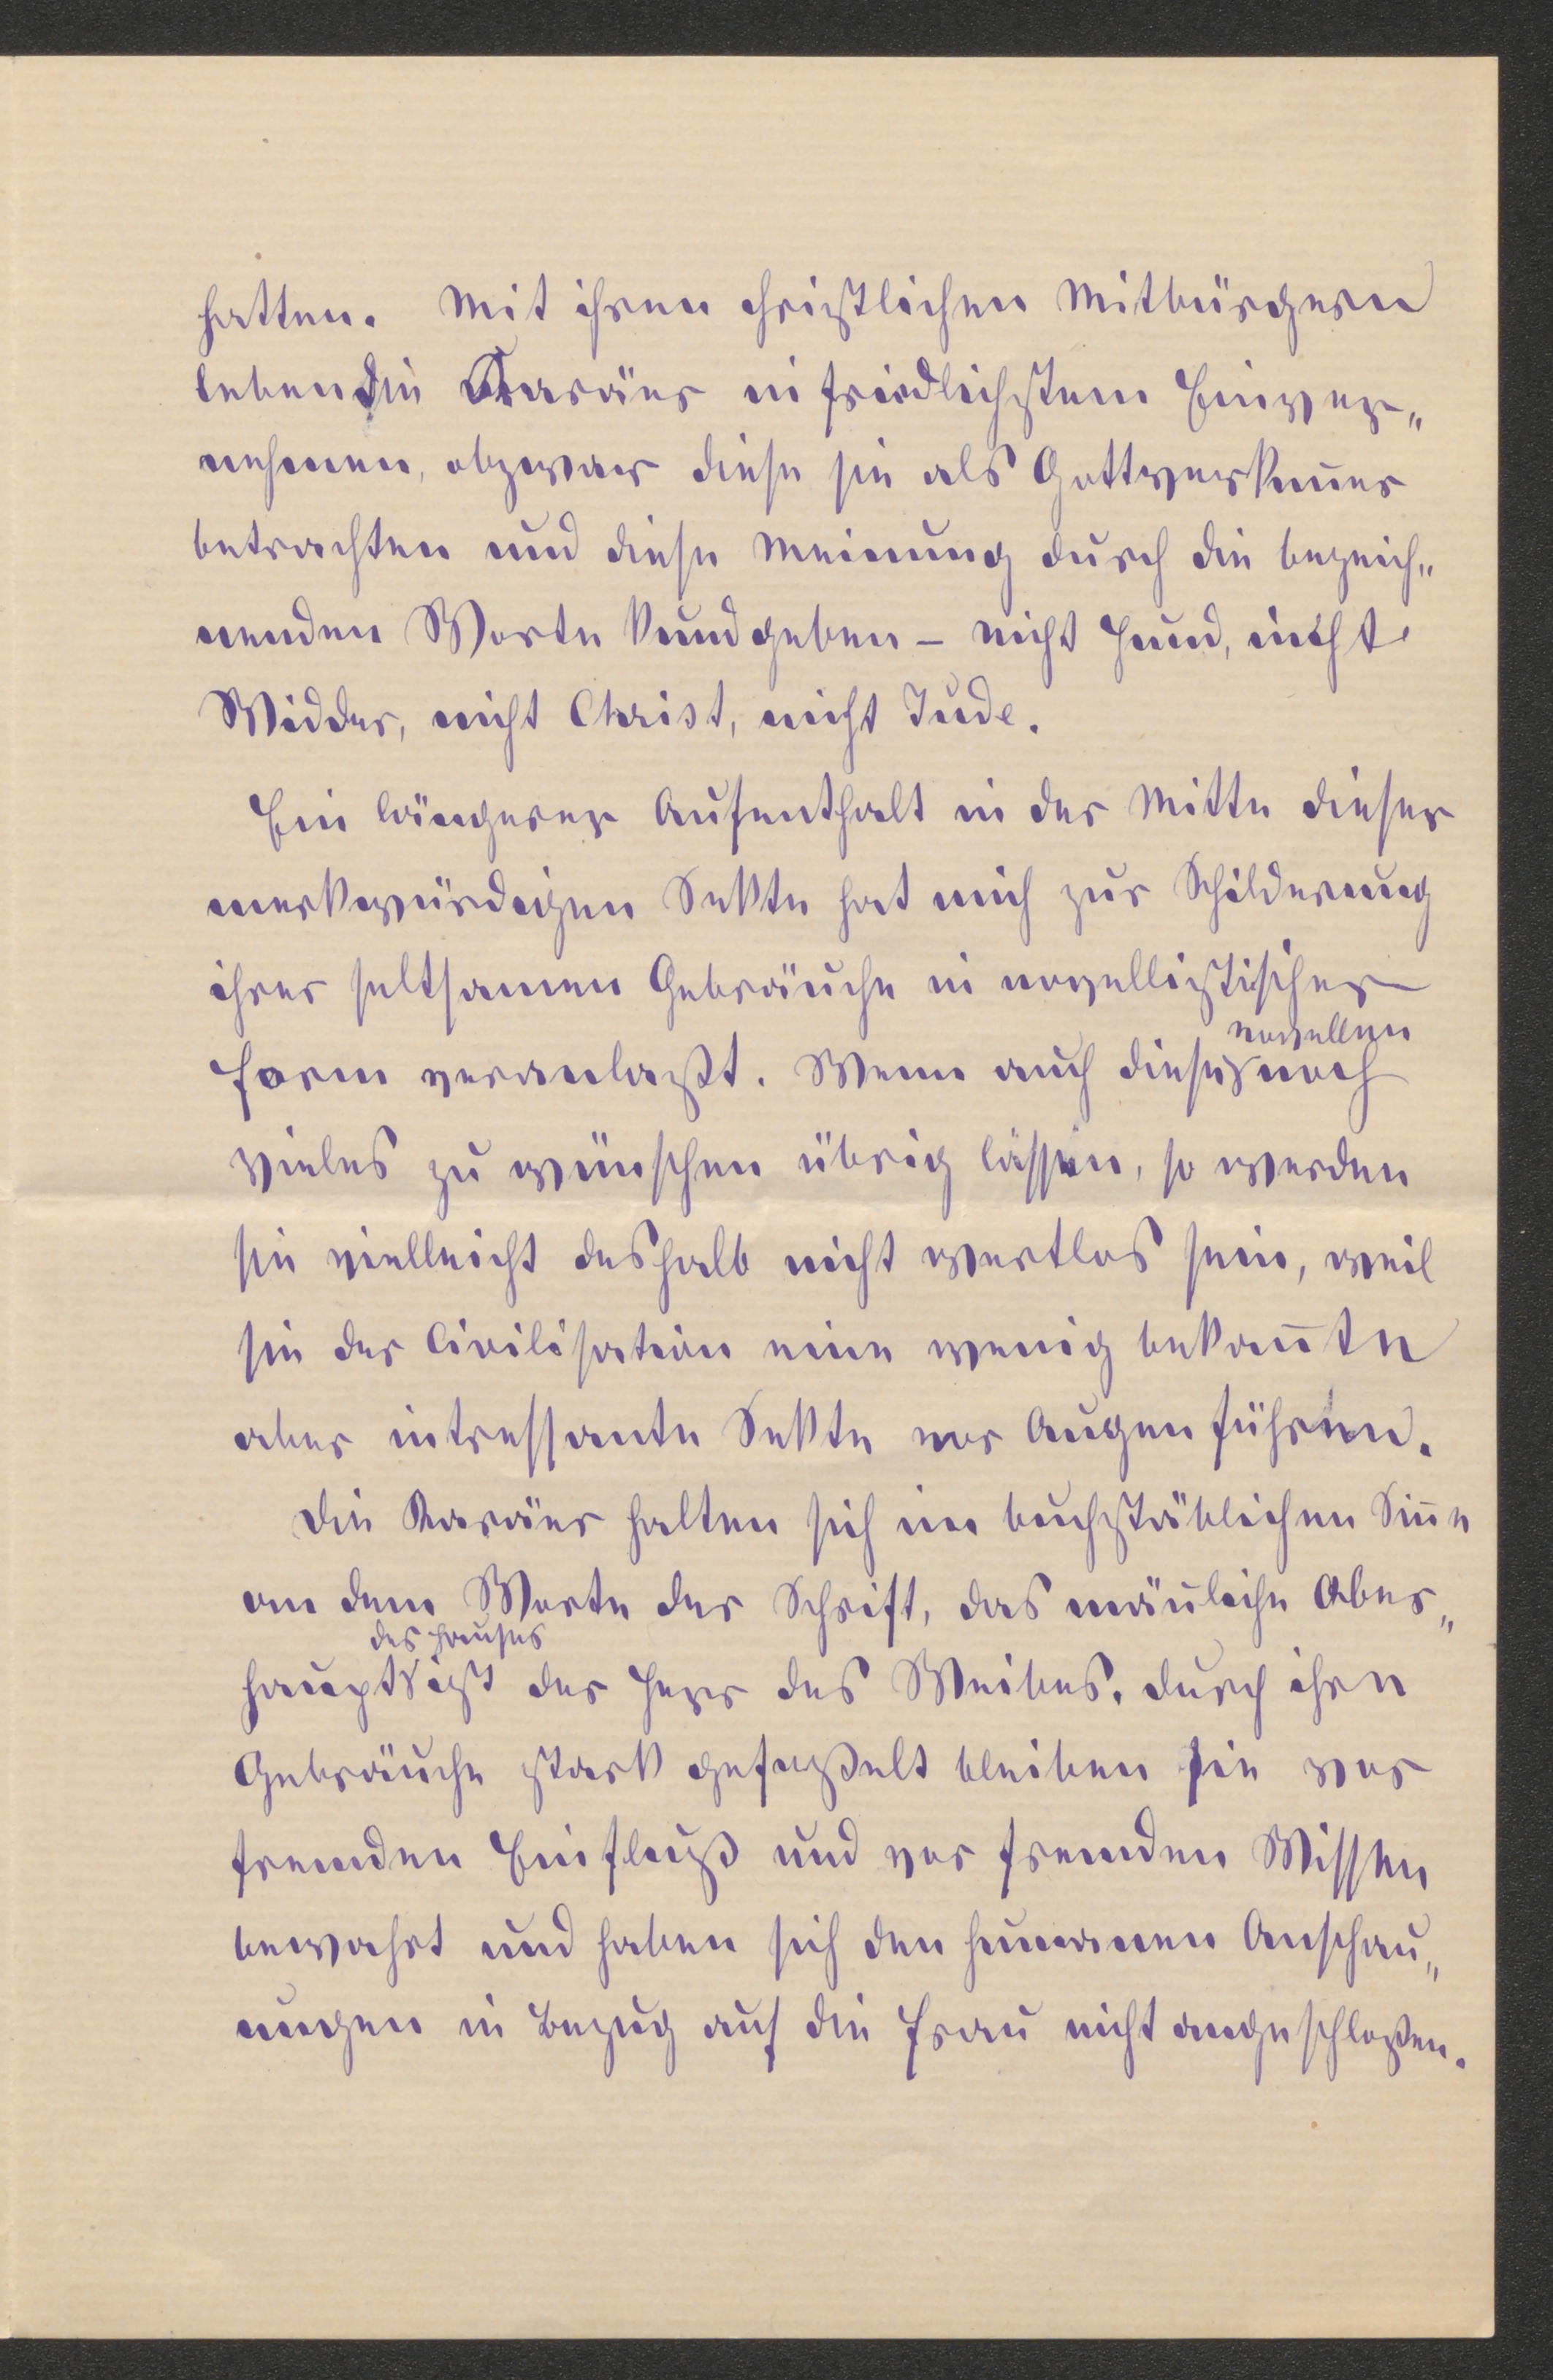 hatten. Mit ihren christlichen Mitbürgern
leben die Karäer in friedlichstem Einver„
nehmen, obzwar diese sie als Gottverkenner
betrachten und diese Meinung durch die bezeich„
nenden Worte kundgeben – nicht Hund, nicht
Widder, nicht Christ, nicht Jude.
Ein längerer Aufenthalt in der Mitte dieser
merkwürdigen Sekte hat mich zur Schilderung
ihrer seltsamen Gebräuche in novellistischer
Novellen
Form veranlaßt. Wenn auch diese noch
vieles zu wünschen übrig lassen, so werden
sie vielleicht deshalb nicht wertlos sein, weil
sie der Civilisation eine wenig bekan̄te
aber intressante Sekte vor Augen führen.
Die Karäer halten sich im buchstäblichen Sin̄e
an dem Worte der Schrift, das mäṅliche Ober„
des Hauses
haupt ist der Herr des Weibes. Durch ihre
Gebräuche stark gefesselt bleiben sie vor
fremden Einfluß und vor fremden Wissen
bewahrt und haben sich den humanen Anschau„
ungen in Bezug auf die Frau nicht angeschloßen.